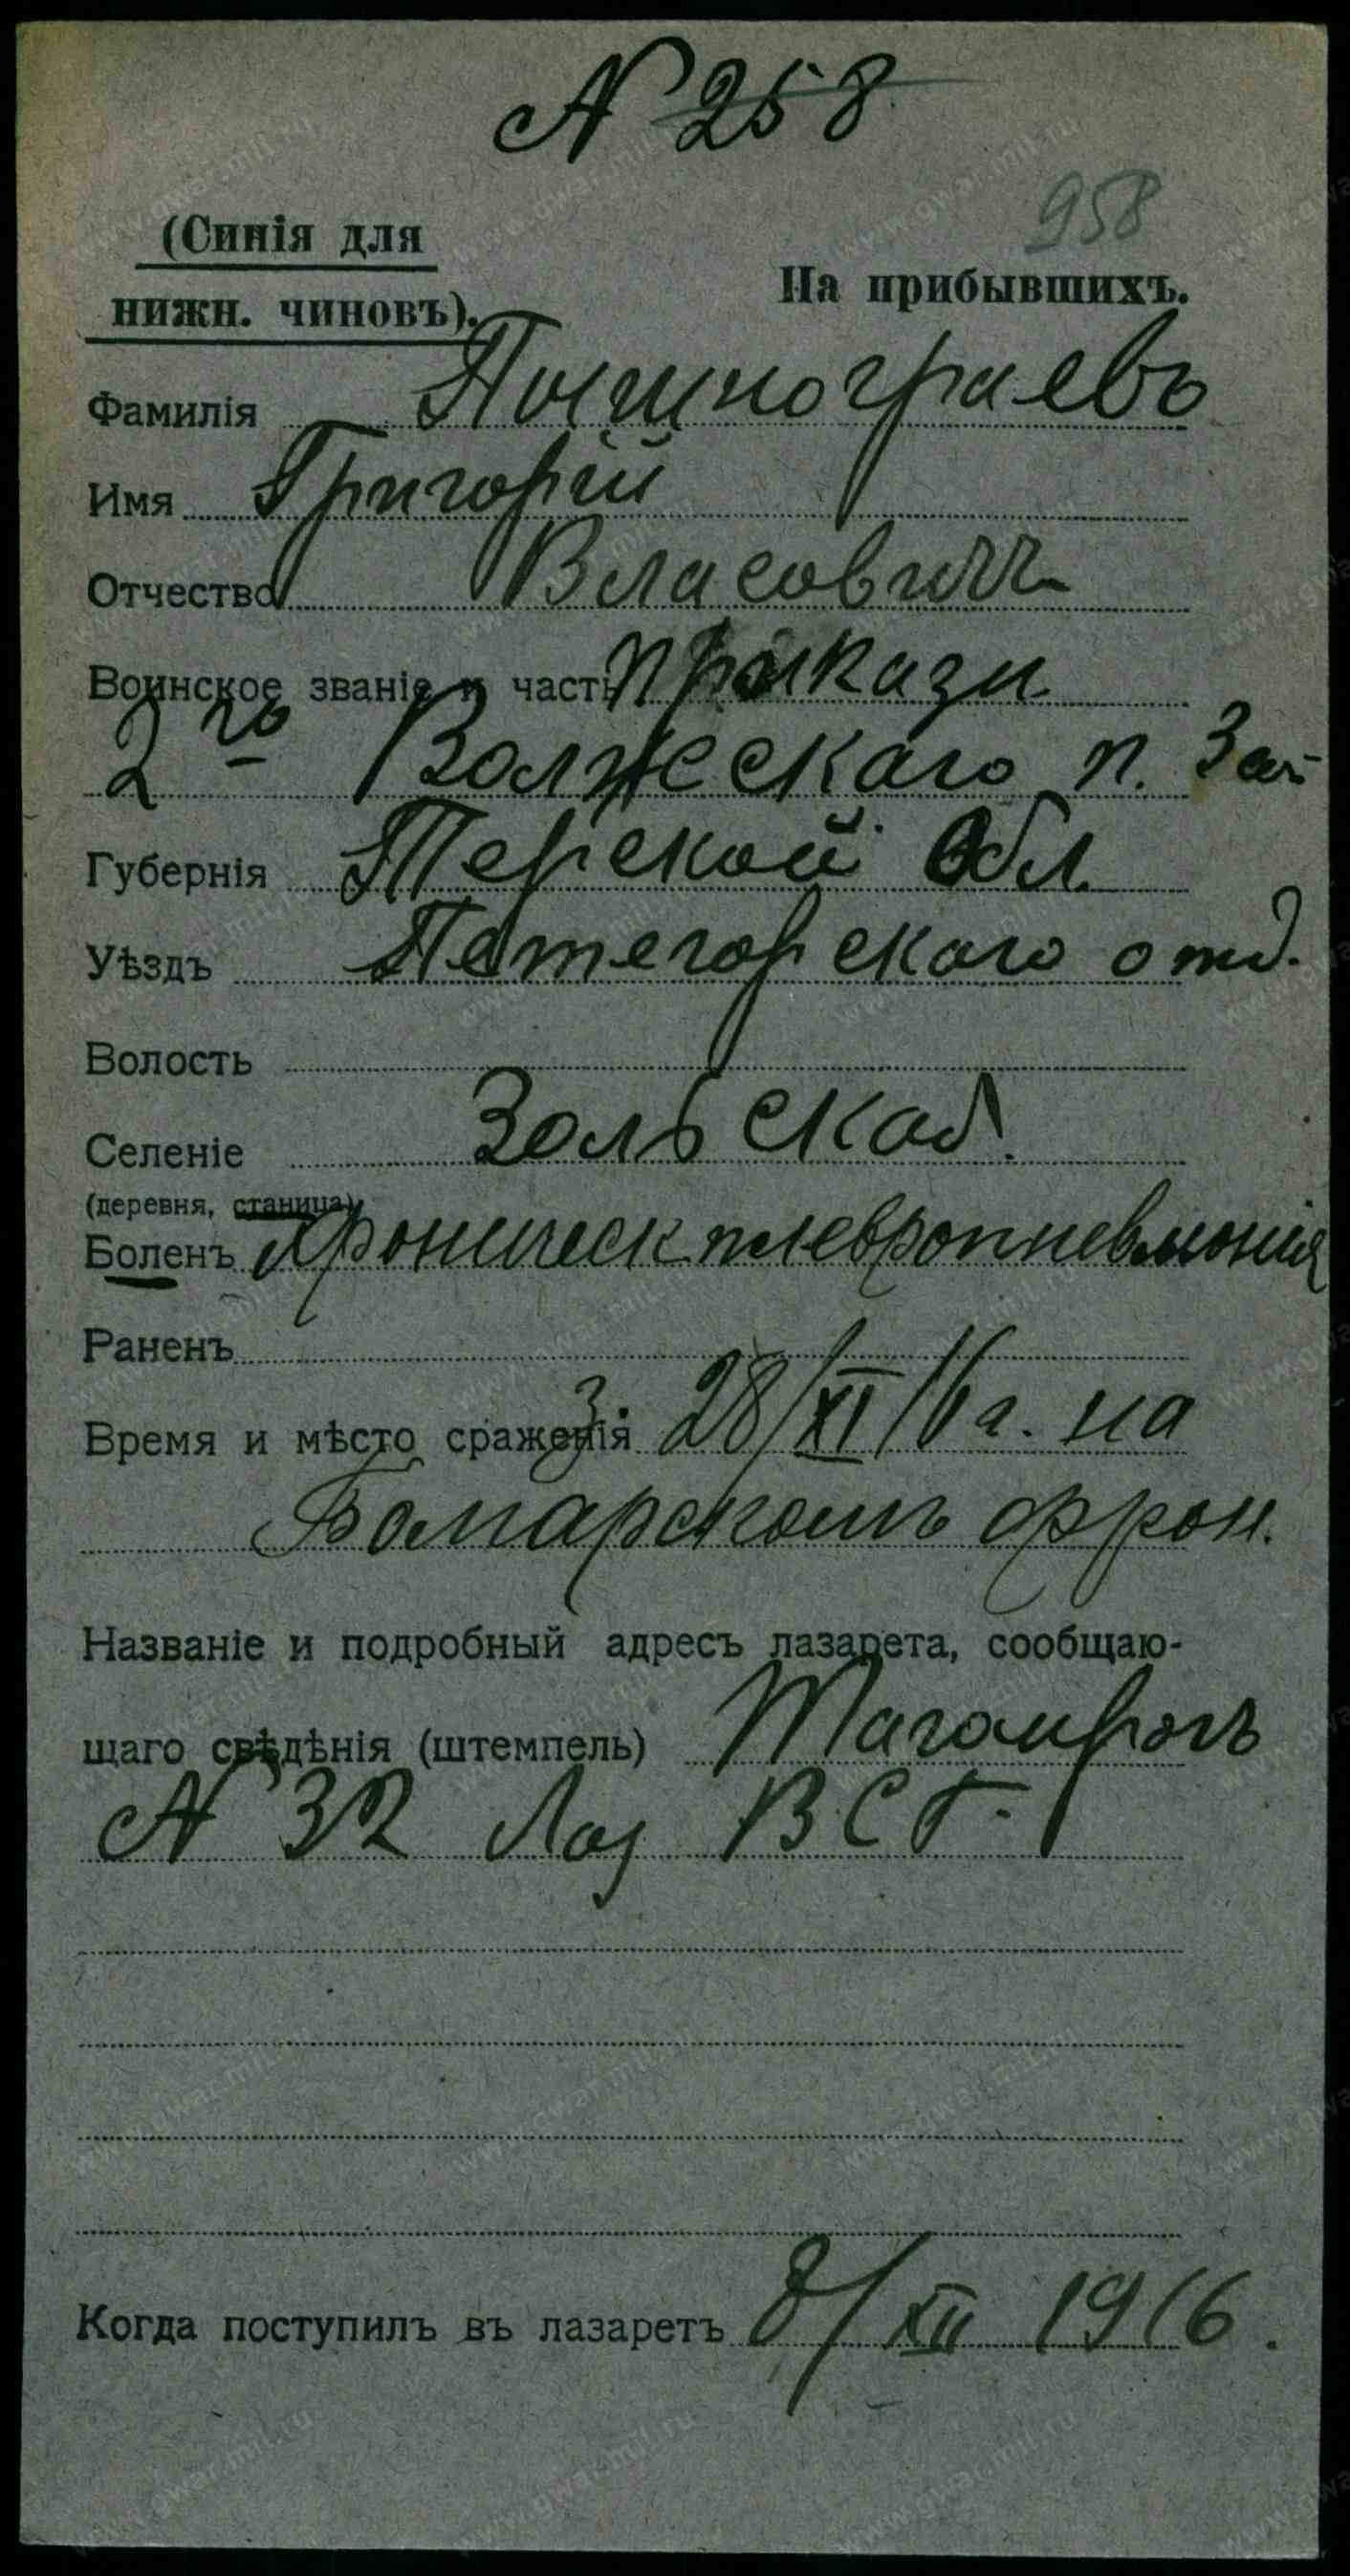 N 258
958
(Синія для
нижн. чиновъ).
На прибывшихъ.
Фамилія Пышнограевъ
Имя Григорій
Отчество Власовичъ
Воинское званіе и часть приказн.
2го Волжскаго п. Заб
Губернія Терской Обл.
Уѣздъ Пятегорскаго отд.
Волость
Селеніе Зольской.
(деревня, станица)
Боленъ Хроническ плевропневмонія
Раненъ
Время и мѣсто сраженія З. 28/XI 16 г. на
Болгарскомъ фрон.
Названіе и подробный адресъ лазарета, сообщаю-
щаго свѣдѣнія (штемпель) Таганрогъ
N 32 Лаз В С Г.
Когда поступилъ въ лазаретъ 8/XII 1916.